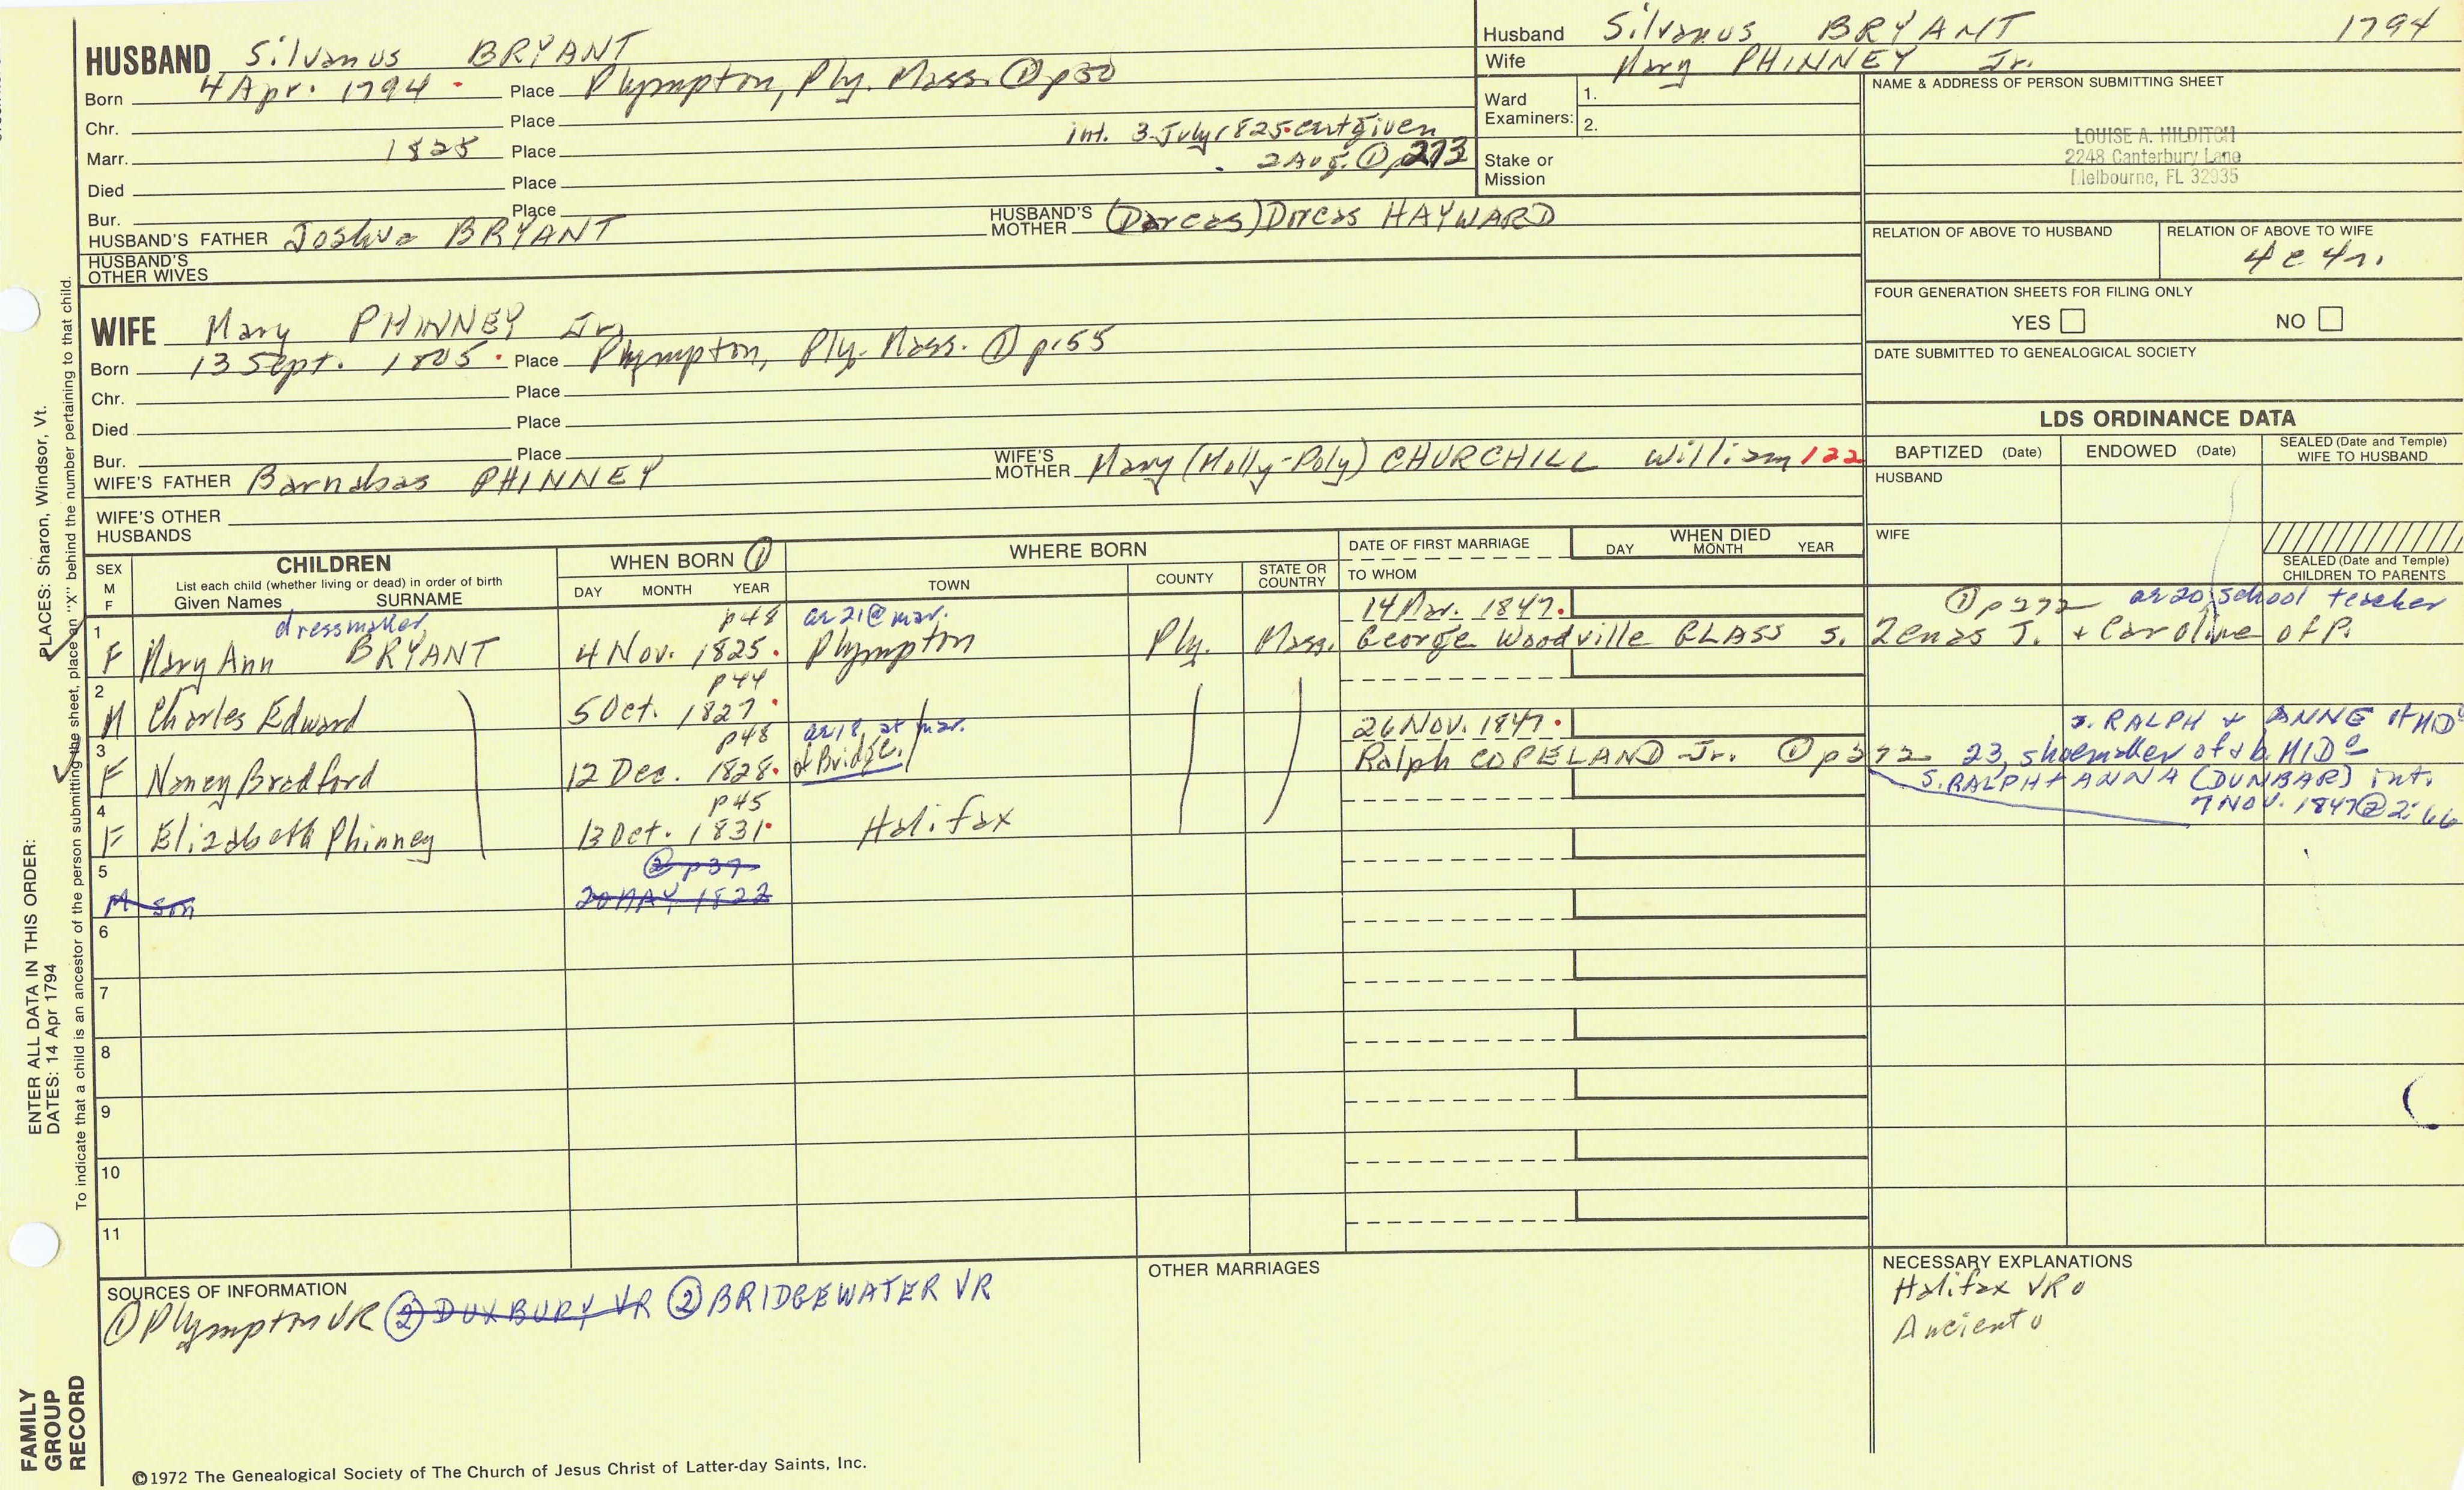 HUSBAND Silvanus BRYANT
Born 4 Apr. 1794 Place Plympton, Ply. Mass. ① p50
Chr. Place
Marr. 1825 Place int. 3 July 1825 cert given
2 Aug. ① p273
Died Place
Bur. Place
HUSBAND'S FATHER Joshua BRYANT HUSBAND'S MOTHER (Dorcas) Dircas HAYWARD
HUSBAND'S OTHER WIVES
Husband Silvanus BRYANT 1794
Wife Mary PHINNEY Jr.
Ward Examiners: 1.
2.
Stake or Mission
NAME & ADDRESS OF PERSON SUBMITTING SHEET
LOUISE A. HILDITCH
2248 Canterbury Lane
Melbourne, FL 32935
RELATION OF ABOVE TO HUSBAND RELATION OF ABOVE TO WIFE
4c4r.
FOUR GENERATION SHEETS FOR FILING ONLY
YES NO
DATE SUBMITTED TO GENEALOGICAL SOCIETY
WIFE Mary PHINNEY Jr.
Born 13 Sept. 1805 Place Plympton, Ply. Mass. ① p.55
Chr. Place
Died Place
Bur. Place
WIFE'S FATHER Barnabas PHINNEY WIFE'S MOTHER Mary (Molly-Poly) CHURCHILL William 122
WIFE'S OTHER HUSBANDS
LDS ORDINANCE DATA
BAPTIZED (Date) ENDOWED (Date) SEALED (Date and Temple) WIFE TO HUSBAND
HUSBAND
WIFE
SEALED (Date and Temple) CHILDREN TO PARENTS
SEX M F CHILDREN
List each child (whether living or dead) in order of birth
Given Names SURNAME
WHEN BORN ①
DAY MONTH YEAR
WHERE BORN
TOWN COUNTY STATE OR COUNTRY
DATE OF FIRST MARRIAGE
TO WHOM
WHEN DIED
DAY MONTH YEAR
dressmaker p48 ae 21 @ mar. 14 Mar. 1847. ① p272 ae 20, school teacher
1 F Mary Ann BRYANT 4 Nov. 1825. Plympton Ply. Mass. George Woodville GLASS s. Zenas J. + Caroline of P.
p44
2 M Charles Edward 5 Oct. 1827
p48 ae 18, at mar. 26 Nov. 1847. s. RALPH + ANNE of MID
3 F Nancy Bradford 12 Dec. 1828. of Bridge. Ralph COPELAND Jr. ① p272 23, shoemaker of + b. MID
s. RALPH + ANNA (DUNBAR) int.
7 NOV. 1847 @ 2:66
p45
4 F Elizabeth Phinney 13 Oct. 1831. Halifax
② p37
5 M son 20 MAY 1822
6
7
8
9
10
11
SOURCES OF INFORMATION
① Plympton VR ② DUXBURY VR ② BRIDGEWATER VR
OTHER MARRIAGES
NECESSARY EXPLANATIONS
Halifax VR o
Ancient o
PLACES: Sharon, Windsor, Vt.
To indicate that a child is an ancestor of the person submitting the sheet, place an "X" behind the number pertaining to that child.
ENTER ALL DATA IN THIS ORDER:
DATES: 14 Apr 1794
FAMILY
GROUP
RECORD
©1972 The Genealogical Society of The Church of Jesus Christ of Latter-day Saints, Inc.